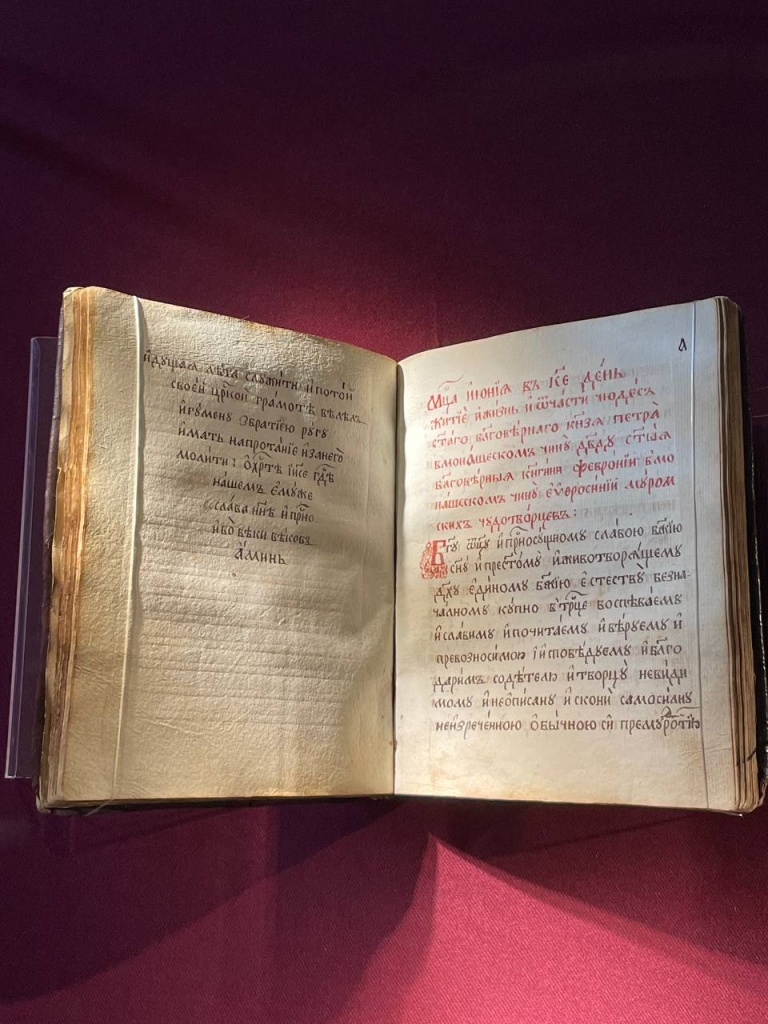 и҆дущаѧ лѣта служи́ти и҆потои҆
своеи҆ цр҃кои грамотѣ велѣл
и҆гумену збратиею ругу
и҆мать напротание и҆занего
молити: ѡ҆хр҃тѣ і҆и҃се гд҃ѣ
нашемъ є҆муже
слава нн҃ѣ и҆прⷭ҇но
и҆во̀ вѣки вѣковъ
а҆минь
л
Мц҃а и҆ю́нїѧ въ к҃е де́нь
житиѐ и҆жи́знь и҆ ѿчасти чюде́съ
ст҃а́го бл҃гове́рнаго кн҃зѧ петра̀
вмона́шескомъ чину̀ дв҃ду ст҃ыѧ
бл҃гове́рныѧ кн҃ги́ни февронїи вмо
на́шескомъ чину̀ є҆уфроси́нїи му́ром
скихъ чудотво́рцевъ:
Б҃гу ѿц҃у и҆прⷭ҇носущному сло́вою бж҃їю
сн҃у и҆прест҃о́му̀ и҆животворѧ́щему
дх҃у є҆ди́ному бж҃їю є҆стествꙋ̀ безна
ча́лному ку́пно втрⷪ҇це воспѣва́ему
и҆сла́виму и҆почита́ему и҆вѣ́руему и҆
превозноси́мою і҆и҆сповѣ́дуему и҆бл҃го
дари́мъ содѣ́телю и҆творцу̀ неви́ди
мому и҆неѡ҆пи́сану и҆сконѝ самоси́лну
неи҆зрече́нною ѻ҆бы́чною си́ прему́ростїю